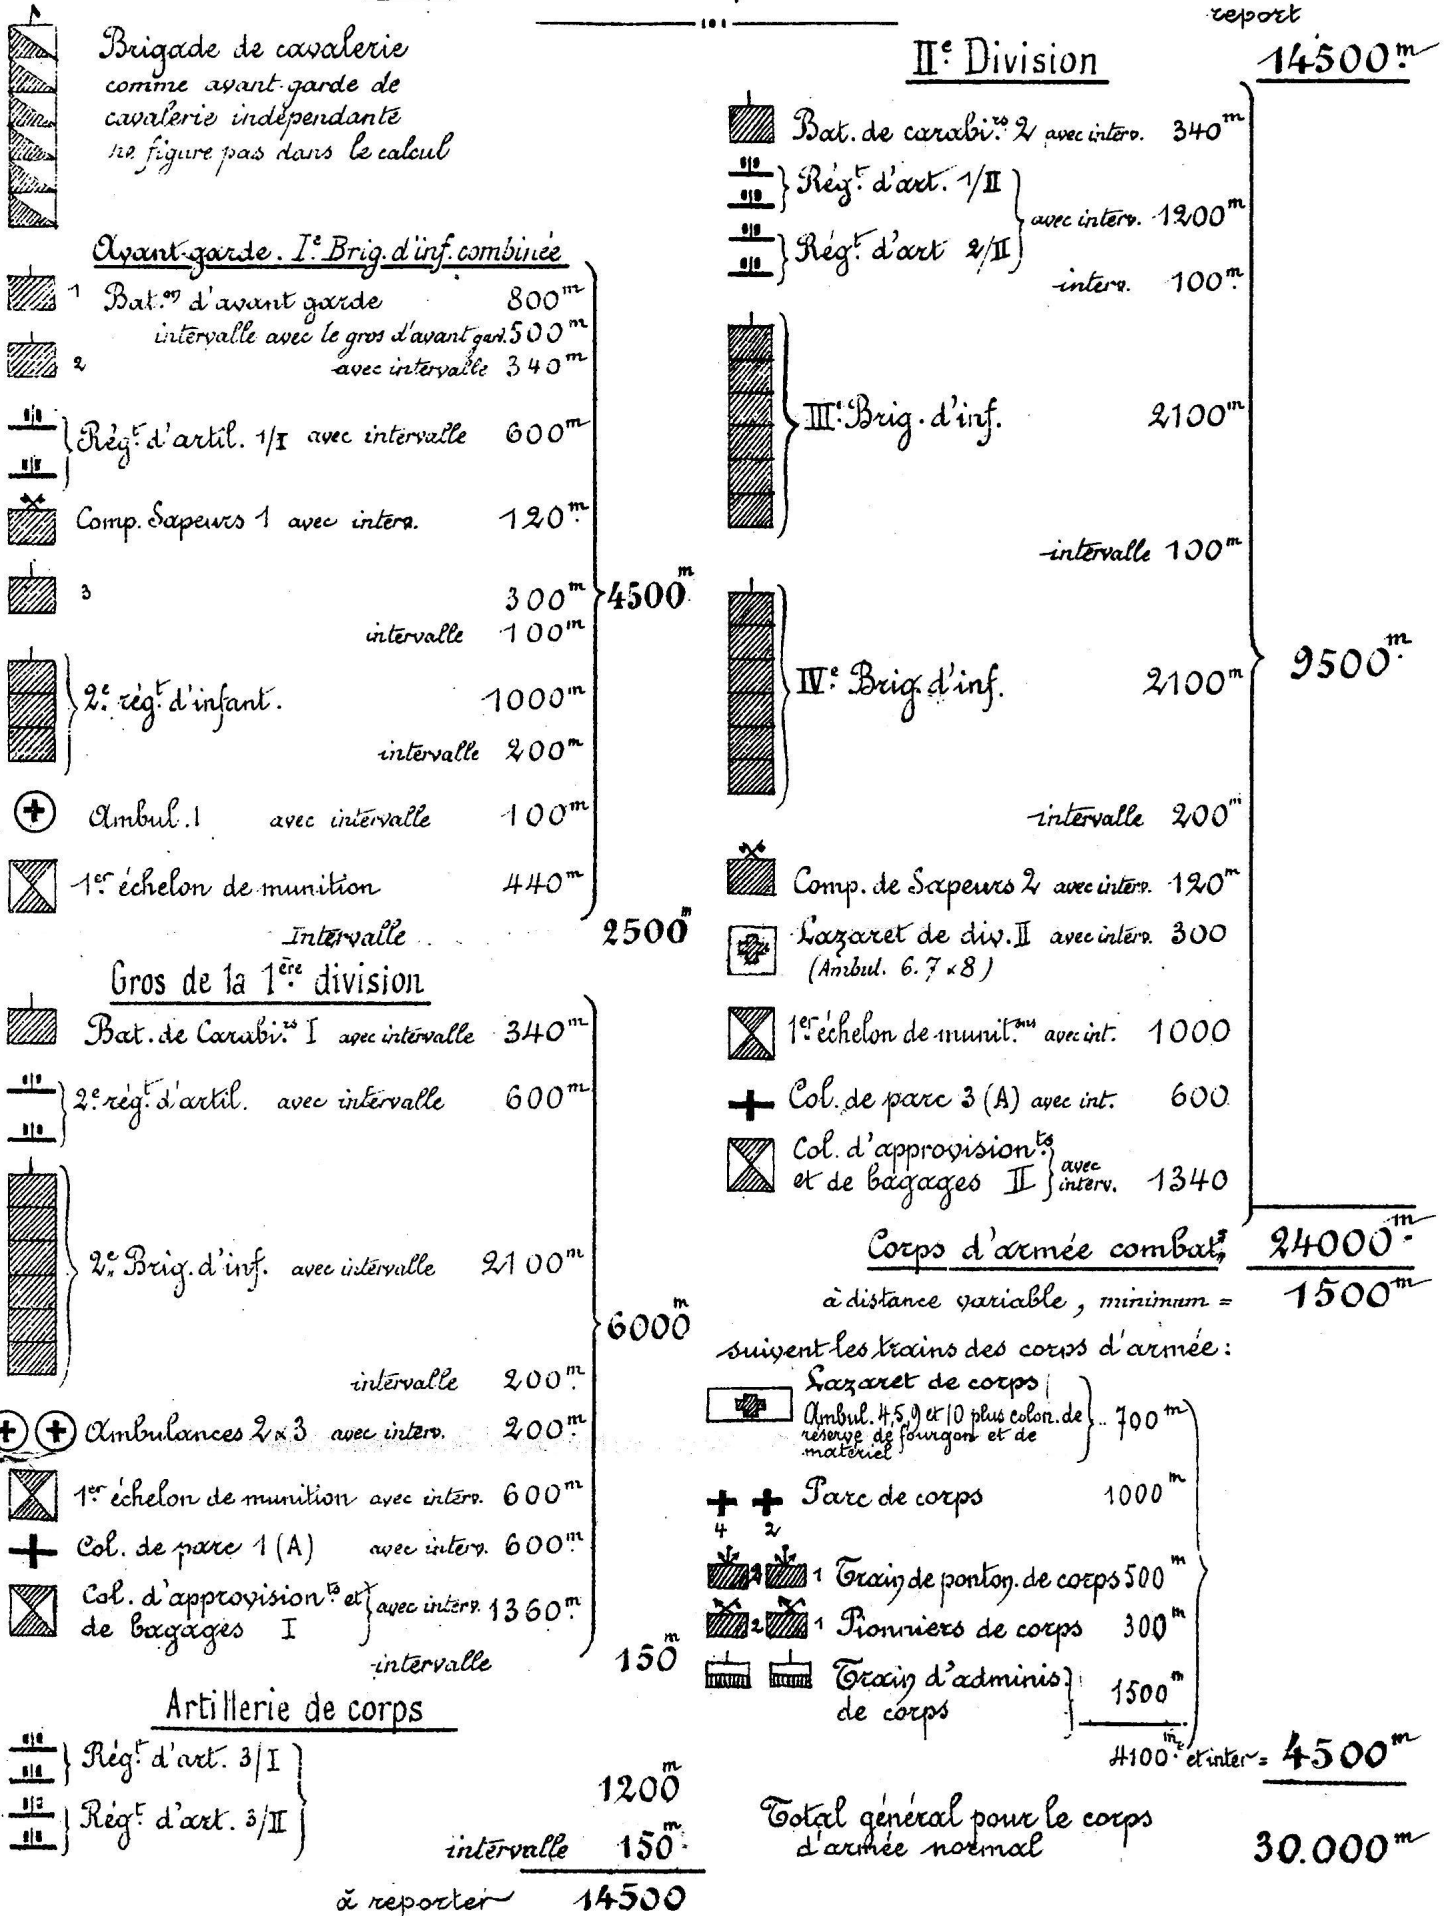 Brigade de cavalerie
comme avant-garde de
cavalerie indépendante
ne figure pas dans le calcul
Avant-garde. I.e Brig. d'inf. combinée
1 Bat.on d'avant garde 800m
intervalle avec le gros d'avant gard. 500m
2 avec intervalle 340m
Rég.t d'artil. 1/I avec intervalle 600m
Comp. Sapeurs 1 avec interv. 120m
3 300m
4500m
intervalle 100m
2.e rég.t d'infant. 1000m
intervalle 200m
Ambul. 1 avec intervalle 100m
1.er échelon de munition 440m
Intervalle 2500m
Gros de la 1.ère division
Bat. de Carabi.rs I avec intervalle 340m
2.e rég.t d'artil. avec intervalle 600m
2.e Brig. d'inf. avec intervalle 2100m
6000m
intervalle 200m
Ambulances 2 & 3 avec interv. 200m
1.er échelon de munition avec interv. 600m
Col. de parc 1 (A) avec interv. 600m
Col. d'approvision.ts et
de bagages I
avec interv. 1360m
intervalle 150m
Artillerie de corps
Rég.t d'art. 3/I
Rég.t d'art. 3/II
1200m
intervalle 150m
à reporter 14500
report
II.e Division 14500m
Bat. de carabi.rs 2 avec interv. 340m
Rég.t d'art. 1/II
Rég.t d'art 2/II
avec interv. 1200m
interv. 100m
III.e Brig. d'inf. 2100m
intervalle 100m
IV.e Brig. d'inf. 2100m
9500m
intervalle 200m
Comp. de Sapeurs 2 avec interv. 120m
Lazaret de div. II avec interv. 300
(Ambul. 6. 7 & 8)
1.er échelon de munit.ons avec int. 1000
Col. de parc 3 (A) avec int. 600
Col. d'approvision.ts
et de bagages II
avec
interv. 1340
Corps d'armée combat.t 24000m
à distance variable, minimum = 1500m
suivent les trains des corps d'armée :
Lazaret de corps
Ambul. 4, 5, 9 et 10 plus colon. de
réserve de fourgon et de
matériel
700m
Parc de corps 1000m
4 2
2 1 Train de ponton. de corps 500m
2 1 Pionniers de corps 300m
Train d'adminis.
de corps
1500m
4100m et inter = 4500m
Total général pour le corps
d'armée normal
30.000m